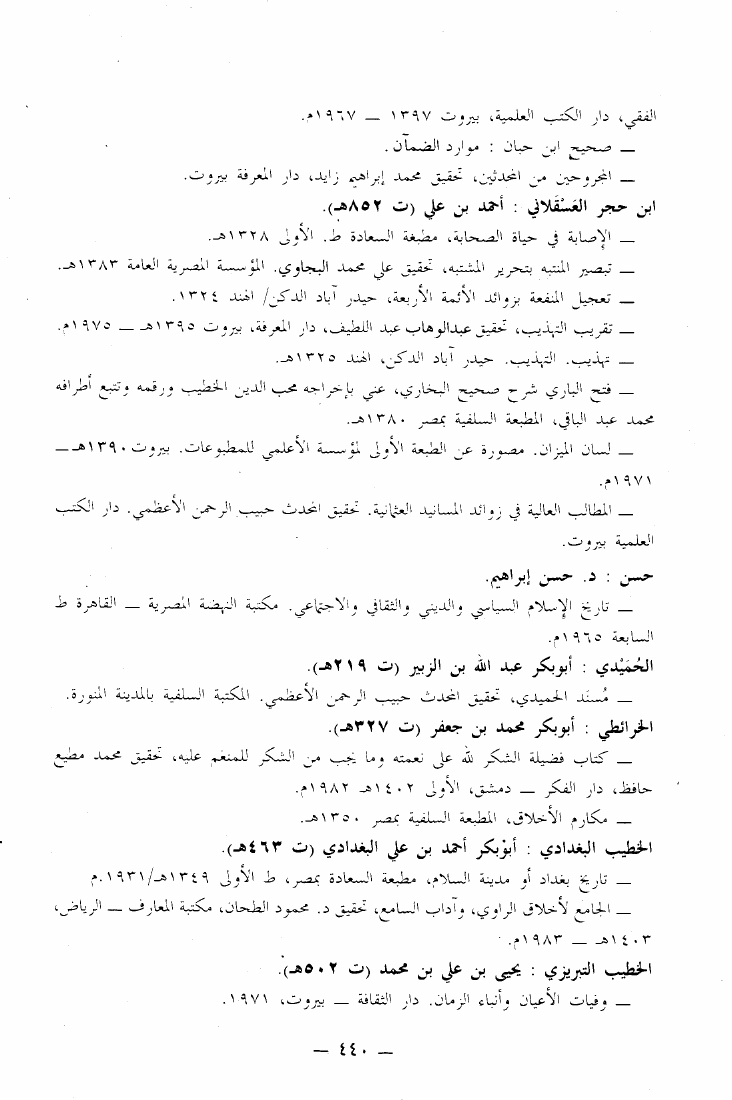 الفقي، دار الكتب العلمية، بيروت ١٣٩٧ ــ ١٩٦٧م.
ــ صحيح ابن حبان : موارد الضمآن.
ــ المجروحين من المحدثين، تحقيق محمد إبراهيم زايد، دار المعرفة بيروت.
ابن حجر العَسْقَلاني : أحمد بن علي (ت ٨٥٢هـ).
ــ الإصابة في حياة الصحابة، مطبعة السعادة ط. الأولى ١٣٢٨هـ.
ــ تبصير المنتبه بتحرير المشتبه، تحقيق علي محمد البجاوي. المؤسسة المصرية العامة ١٣٨٣هـ.
ــ تعجيل المنفعة بزوائد الأئمة الأربعة، حيدر آباد الدكن/ الهند ١٣٢٤.
ــ تقريب التهذيب، تحقيق عبدالوهاب عبد اللطيف، دار المعرفة، بيروت ١٣٩٥هـ ــ ١٩٧٥م.
ــ تهذيب. التهذيب. حيدر آباد الدكن، الهند ١٣٢٥هـ.
ــ فتح الباري شرح صحيح البخاري، عني بإخراجه محب الدين الخطيب ورقمه وتتبع أطرافه
محمد عبد الباقي، المطبعة السلفية بمصر ١٣٨٠هـ.
ــ لسان الميزان. مصورة عن الطبعة الأولى لمؤسسة الأعلمي للمطبوعات. بيروت ١٣٩٠هـ ــ
١٩٧١م.
ــ المطالب العالية في زوائد المسانيد العثمانية. تحقيق المحدث حبيب الرحمن الأعظمي. دار الكتب
العلمية بيروت.
حسن : د. حسن إبراهيم.
ــ تاريخ الإسلام السياسي والديني والثقافي والاجتماعي. مكتبة النهضة المصرية ــ القاهرة ط
السابعة ١٩٦٥م.
الحُمَيْدي : أبوبكر عبد الله بن الزبير (ت ٢١٩هـ).
ــ مُسنَد الحميدي، تحقيق المحدث حبيب الرحمن الأعظمي. المكتبة السلفية بالمدينة المنورة.
الخرائطي : أبوبكر محمد بن جعفر (ت ٣٢٧هـ).
ــ كتاب فضيلة الشكر لله على نعمته وما يجب من الشكر للمنعم عليه، تحقيق محمد مطيع
حافظ، دار الفكر ــ دمشق، الأولى ١٤٠٢هـ ١٩٨٢م.
ــ مكارم الأخلاق، المطبعة السلفية بمصر ١٣٥٠هـ.
الخطيب البغدادي : أبوْبكر أحمد بن علي البغدادي (ت ٤٦٣هـ).
ــ تاريخ بغداد أو مدينة السلام، مطبعة السعادة بمصر، ط الأولى ١٣٤٩هـ/١٩٣١.م
ــ الجامع لأخلاق الراوي، وآداب السامع، تحقيق د. محمود الطحان، مكتبة المعارف ــ الرياض،
١٤٠٣هـ ــ ١٩٨٣م.
الخطيب التبريزي : يحيى بن علي بن محمد (ت ٥٠٢هـ).
ــ وفيات الأعيان وأنباء الزمان. دار الثقافة ــ بيروت، ١٩٧١.
ــ ٤٤٠ ــ